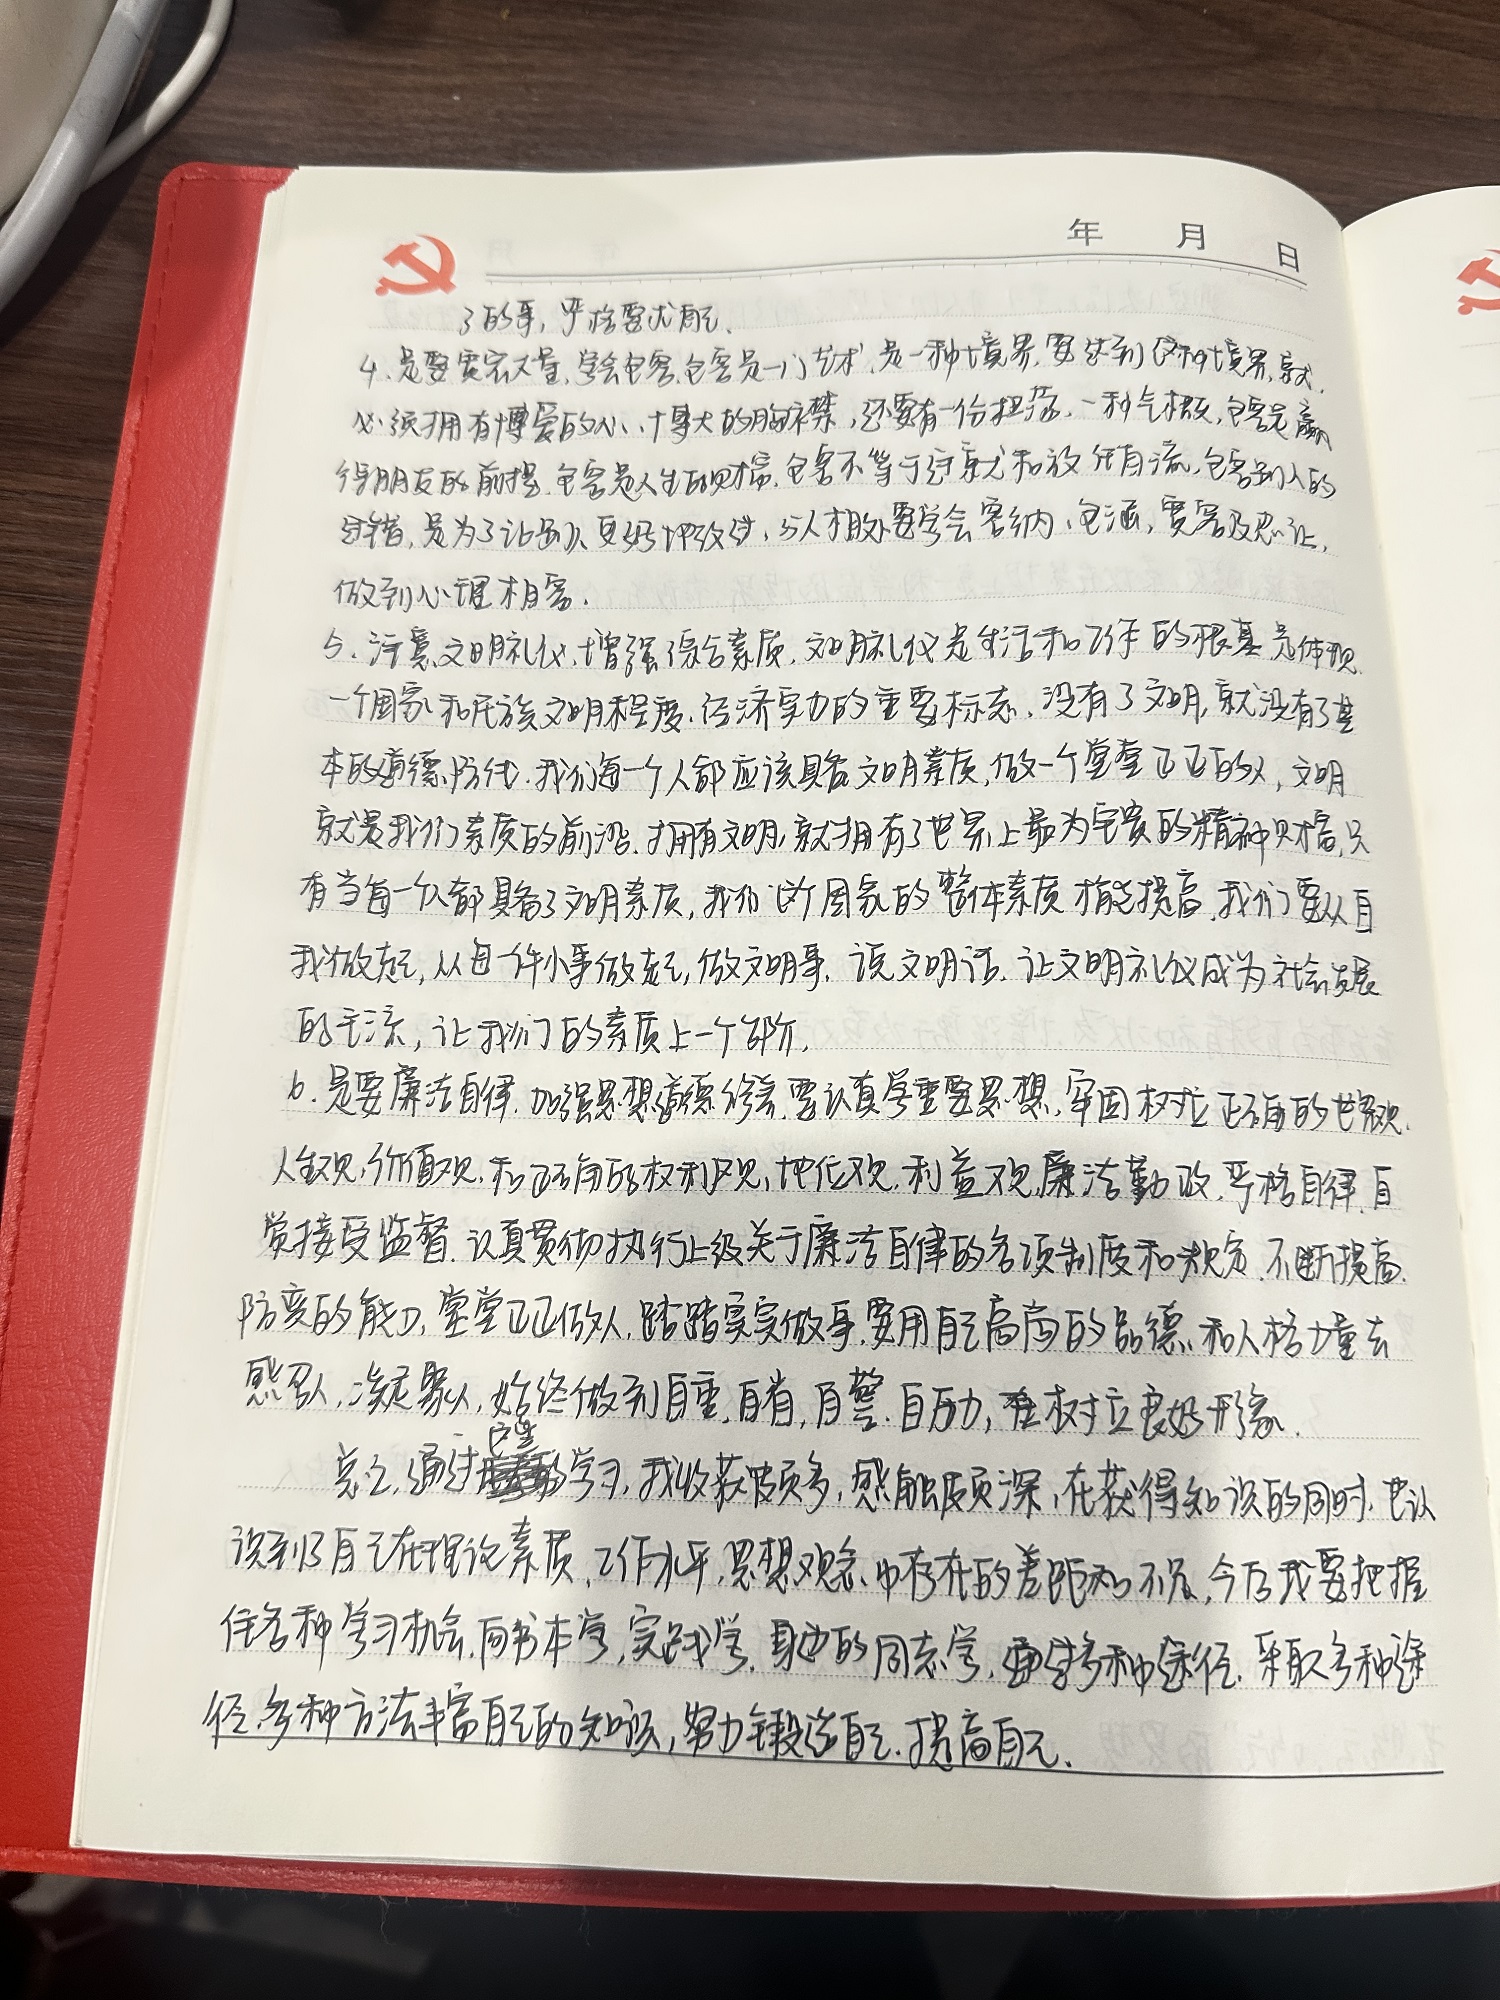 年 月 日
了的事，严格要求自己、
4、是要宽宏大量，学会包容，包容是一门艺术，是一种境界，要达到这种境界，就
必须拥有博爱的心、博大的胸襟，还要有一份坦荡、一种气概，包容是赢
得朋友的前提，包容是人生的财富，包容不等于迁就和放任自流，包容别人的
过错，是为了让别人更好地改过，与人相处要学会容纳、包涵，宽容及忍让，
做到心理相容。
5、注意文明礼仪，增强综合素质，文明礼仪是生活和工作的根基，是体现
一个国家和民族文明程度、经济实力的重要标志、没有了文明，就没有了基
本的道德防线，我们每一个人都应该具备文明素质，做一个堂堂正正的人，文明
就是我们素质的前沿，拥有文明，就拥有了世界上最为宝贵的精神财富，只
有当每一人都具备了文明素质，我们这个国家的整体素质才能提高，我们要从自
我做起，从每一件小事做起，做文明事、说文明话、让文明礼仪成为社会发展
的主流，让我们的素质上一个台阶，
6、是要廉洁自律，加强思想道德修养，要认真学重要思想，牢固树立正确的世界观、
人生观、价值观、和正确的权利观、地位观、利益观，廉洁勤政，严格自律，自
觉接受监督，认真贯彻执行上级关于廉洁自律的各项制度和规定，不断提高
防变的能力，堂堂正正做人，踏踏实实做事，要用自己高尚的品德、和人格力量去
感召人，凝聚人，始终做到自重，自省，自警、自励，树立良好形象、
总之，通过这些学习，我收获颇多，感触颇深，在获得知识的同时，也认
识到了自己在理论素质、工作水平，思想观念中存在的差距和不足，今后我要把握
住各种学习机会，向书本学，实践学，身边的同志学，通过多种途径，采取多种途
径、多种方法丰富自己的知识，努力锻造自己、提高自己、